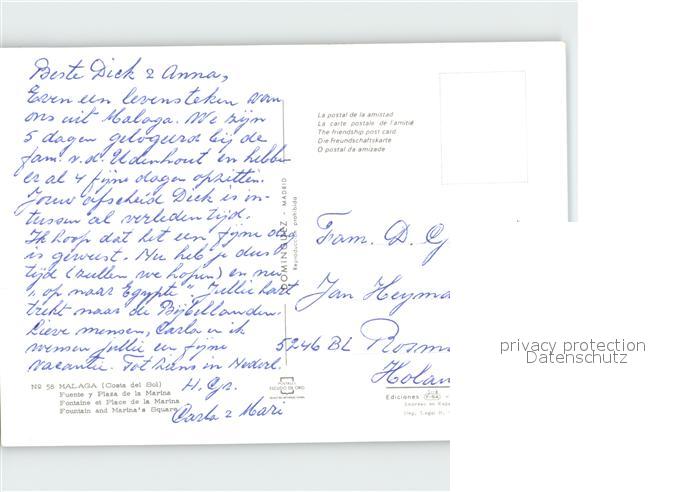 Beste Dick & Anna,
Even een levensteken van
ons uit Malaga. We zijn
5 dagen gelogeerd bij de
fam. v.d. Udenhout en hebben
er al 4 fijne dagen opzitten.
Jouw afscheid Dick is in-
tussen al verleden tijd.
Ik hoop dat het een fijne dag
is geweest. Nu heb je dus
tijd (zullen we hopen) en nu
"op naar Egypte". Jullie hart
trekt naar de Bijbellanden.
Lieve mensen, Carla en ik
wensen jullie een fijne
vacantie. Tot ziens in Nederl.
H. Gr.
Carla &
Nº 58 MALAGA (Costa del Sol)
Fuente y Plaza de la Marina
Fontaine et Place de la Marina
Fountain and Marina's Square
DOMINGUEZ - MADRID
Reproducción prohibida
POSTALES
ESCUDO DE ORO
La postal de la amistad
La carte postale de l'amitié
The friendship post card
Die Freundschaftskarte
O postal da amizade
Fam. D. G
Jan Heyma
5246 BL Rosm
Holan
Ediciones
privacy protection
Datenschutz